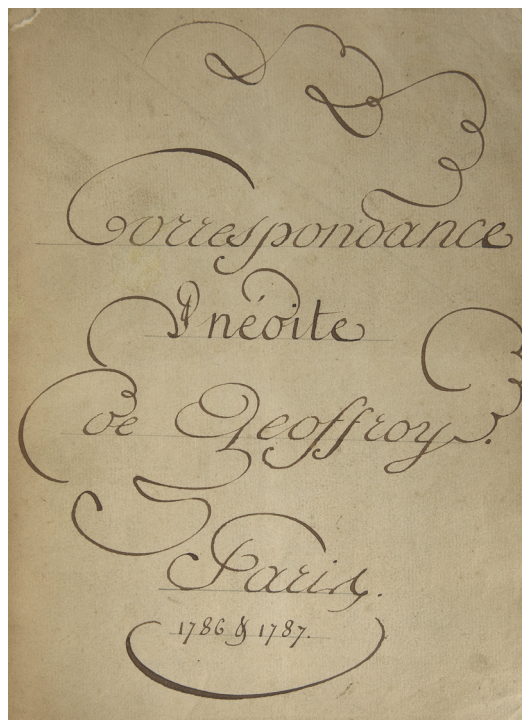 Correspondance
Inédite
de Geoffroy.
Paris.
1786 & 1787.